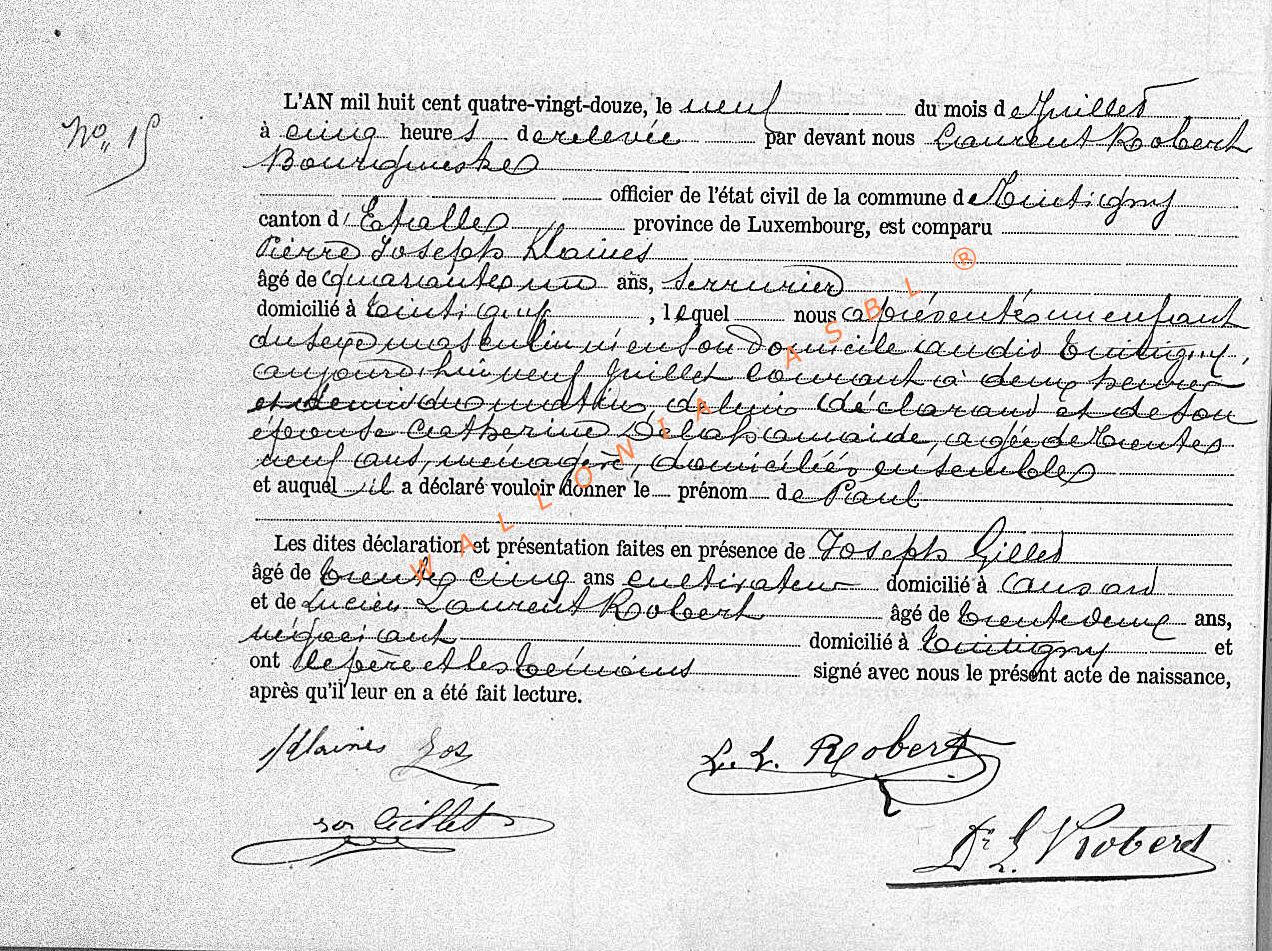 No 15
L'AN mil huit cent quatre-vingt-douze, le neuf du mois de Juillet
à cinq heures de relevée par devant nous Laurent Robert
Bourgmestre
officier de l'état civil de la commune de Tintigny
canton d'Etalle province de Luxembourg, est comparu
Pierre Joseph Klaines
âgé de quarante un ans, serrurier
domicilié à Tintigny, lequel nous a présenté un enfant
du sexe masculin né en son domicile audit Tintigny,
aujourd'hui neuf Juillet courant à deux heures
et demie du matin, de lui déclarant et de son
épouse Catherine Delahamaide, agée de trente
neuf ans, ménagère, domiciliés ensembles
et auquel il a déclaré vouloir donner le prénom de Paul
Les dites déclaration et présentation faites en présence de Joseph Gillet
âgé de trente cinq ans cultivateur domicilié à Ansart
et de Lucien Laurent Robert âgé de trente deux ans,
négociant domicilié à Tintigny et
ont le père et les témoins signé avec nous le présent acte de naissance,
après qu'il leur en a été fait lecture.
Klaines Jos
L. L. Robert
Jos Gillet
Dr L Robert
WALLONIA ASBL ®